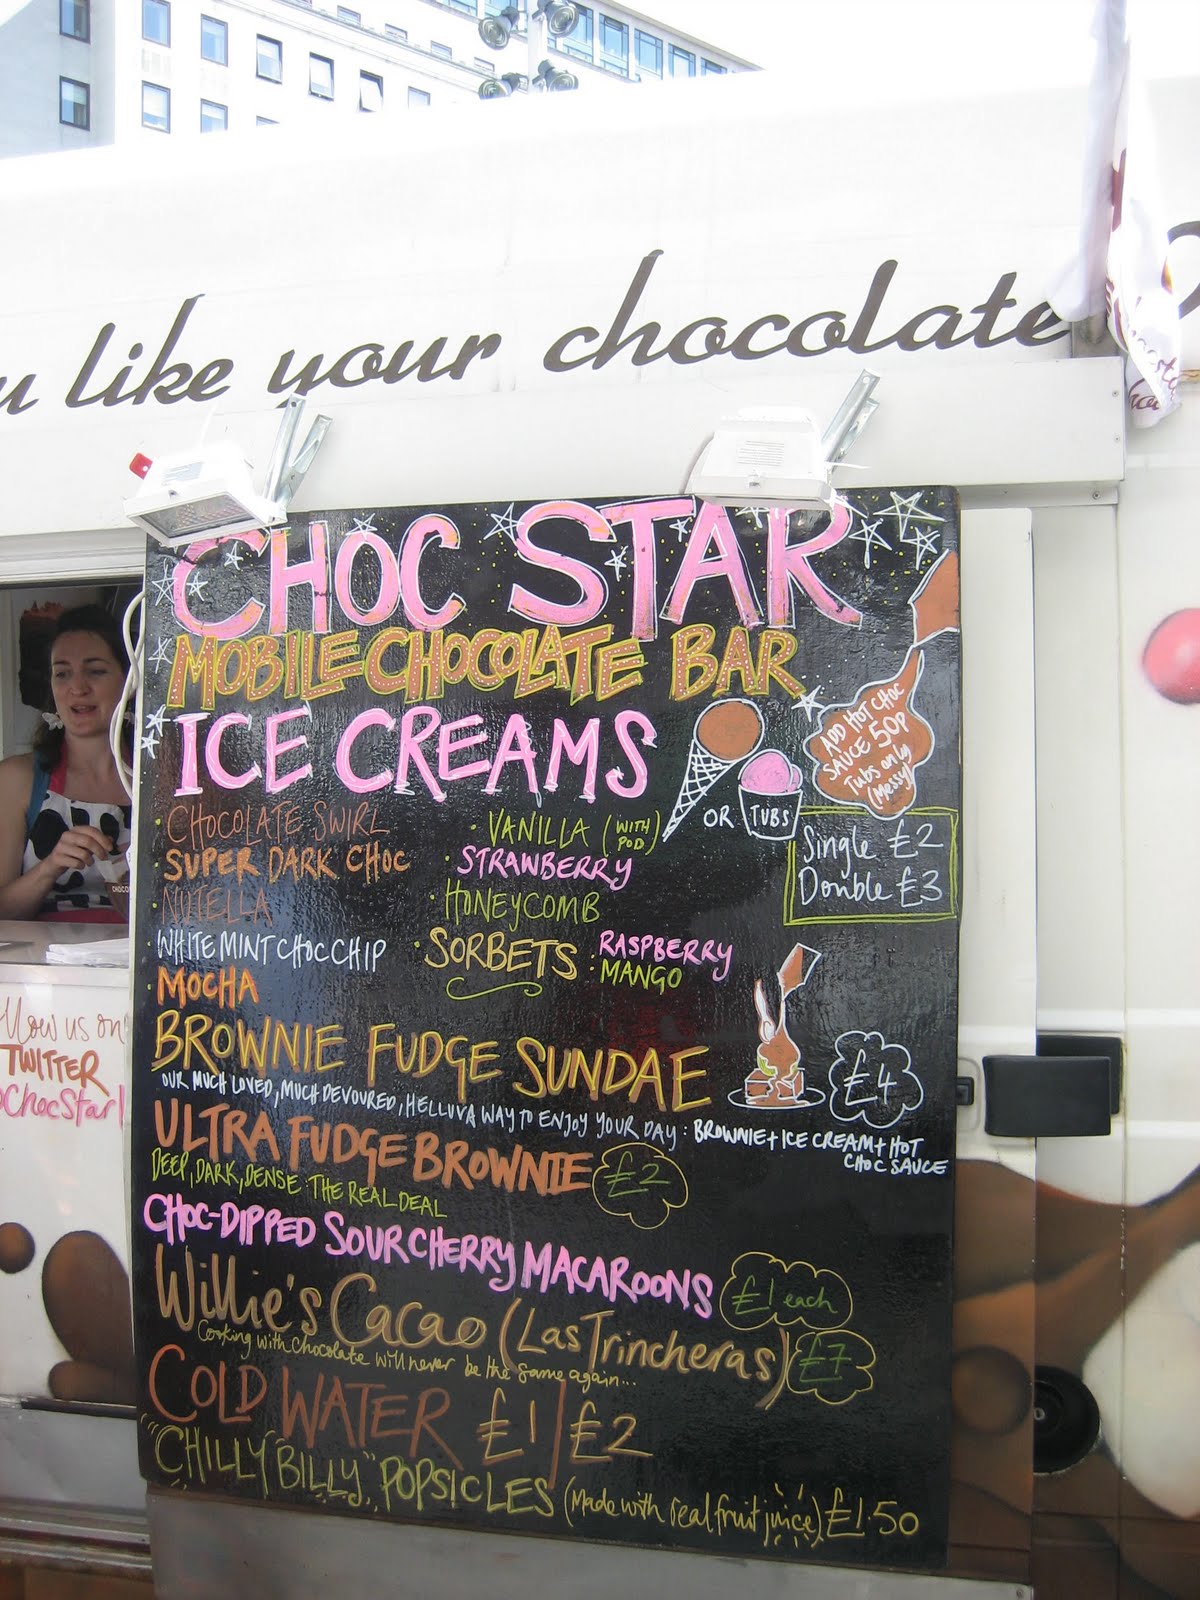 like your chocolate
CHOC STAR
MOBILE CHOCOLATE BAR
ICE CREAMS
ADD HOT CHOC
SAUCE 50P
Tubs only
(Messy)
OR TUBS
Single £2
Double £3
· CHOCOLATE SWIRL
· SUPER DARK CHOC
· NUTELLA
· WHITE MINT CHOC CHIP
· MOCHA
· VANILLA (WITH POD)
· STRAWBERRY
· HONEYCOMB
· SORBETS : RASPBERRY
MANGO
BROWNIE FUDGE SUNDAE £4
OUR MUCH LOVED, MUCH DEVOURED, HELLUVA WAY TO ENJOY YOUR DAY : BROWNIE + ICE CREAM + HOT
CHOC SAUCE
ULTRA FUDGE BROWNIE £2
DEEP, DARK, DENSE : THE REAL DEAL
CHOC-DIPPED SOUR CHERRY MACAROONS £1 each
Willie's Cacao (Las Trincheras) £7
Cooking with chocolate will never be the same again...
COLD WATER £1 | £2
"CHILLY BILLY" POPSICLES (Made with real fruit juice) £1.50
llow us on
TWITTER
ChocStar1
CHOCO